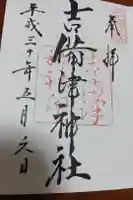 奉拝
吉備津神社
平成三十年五月六日